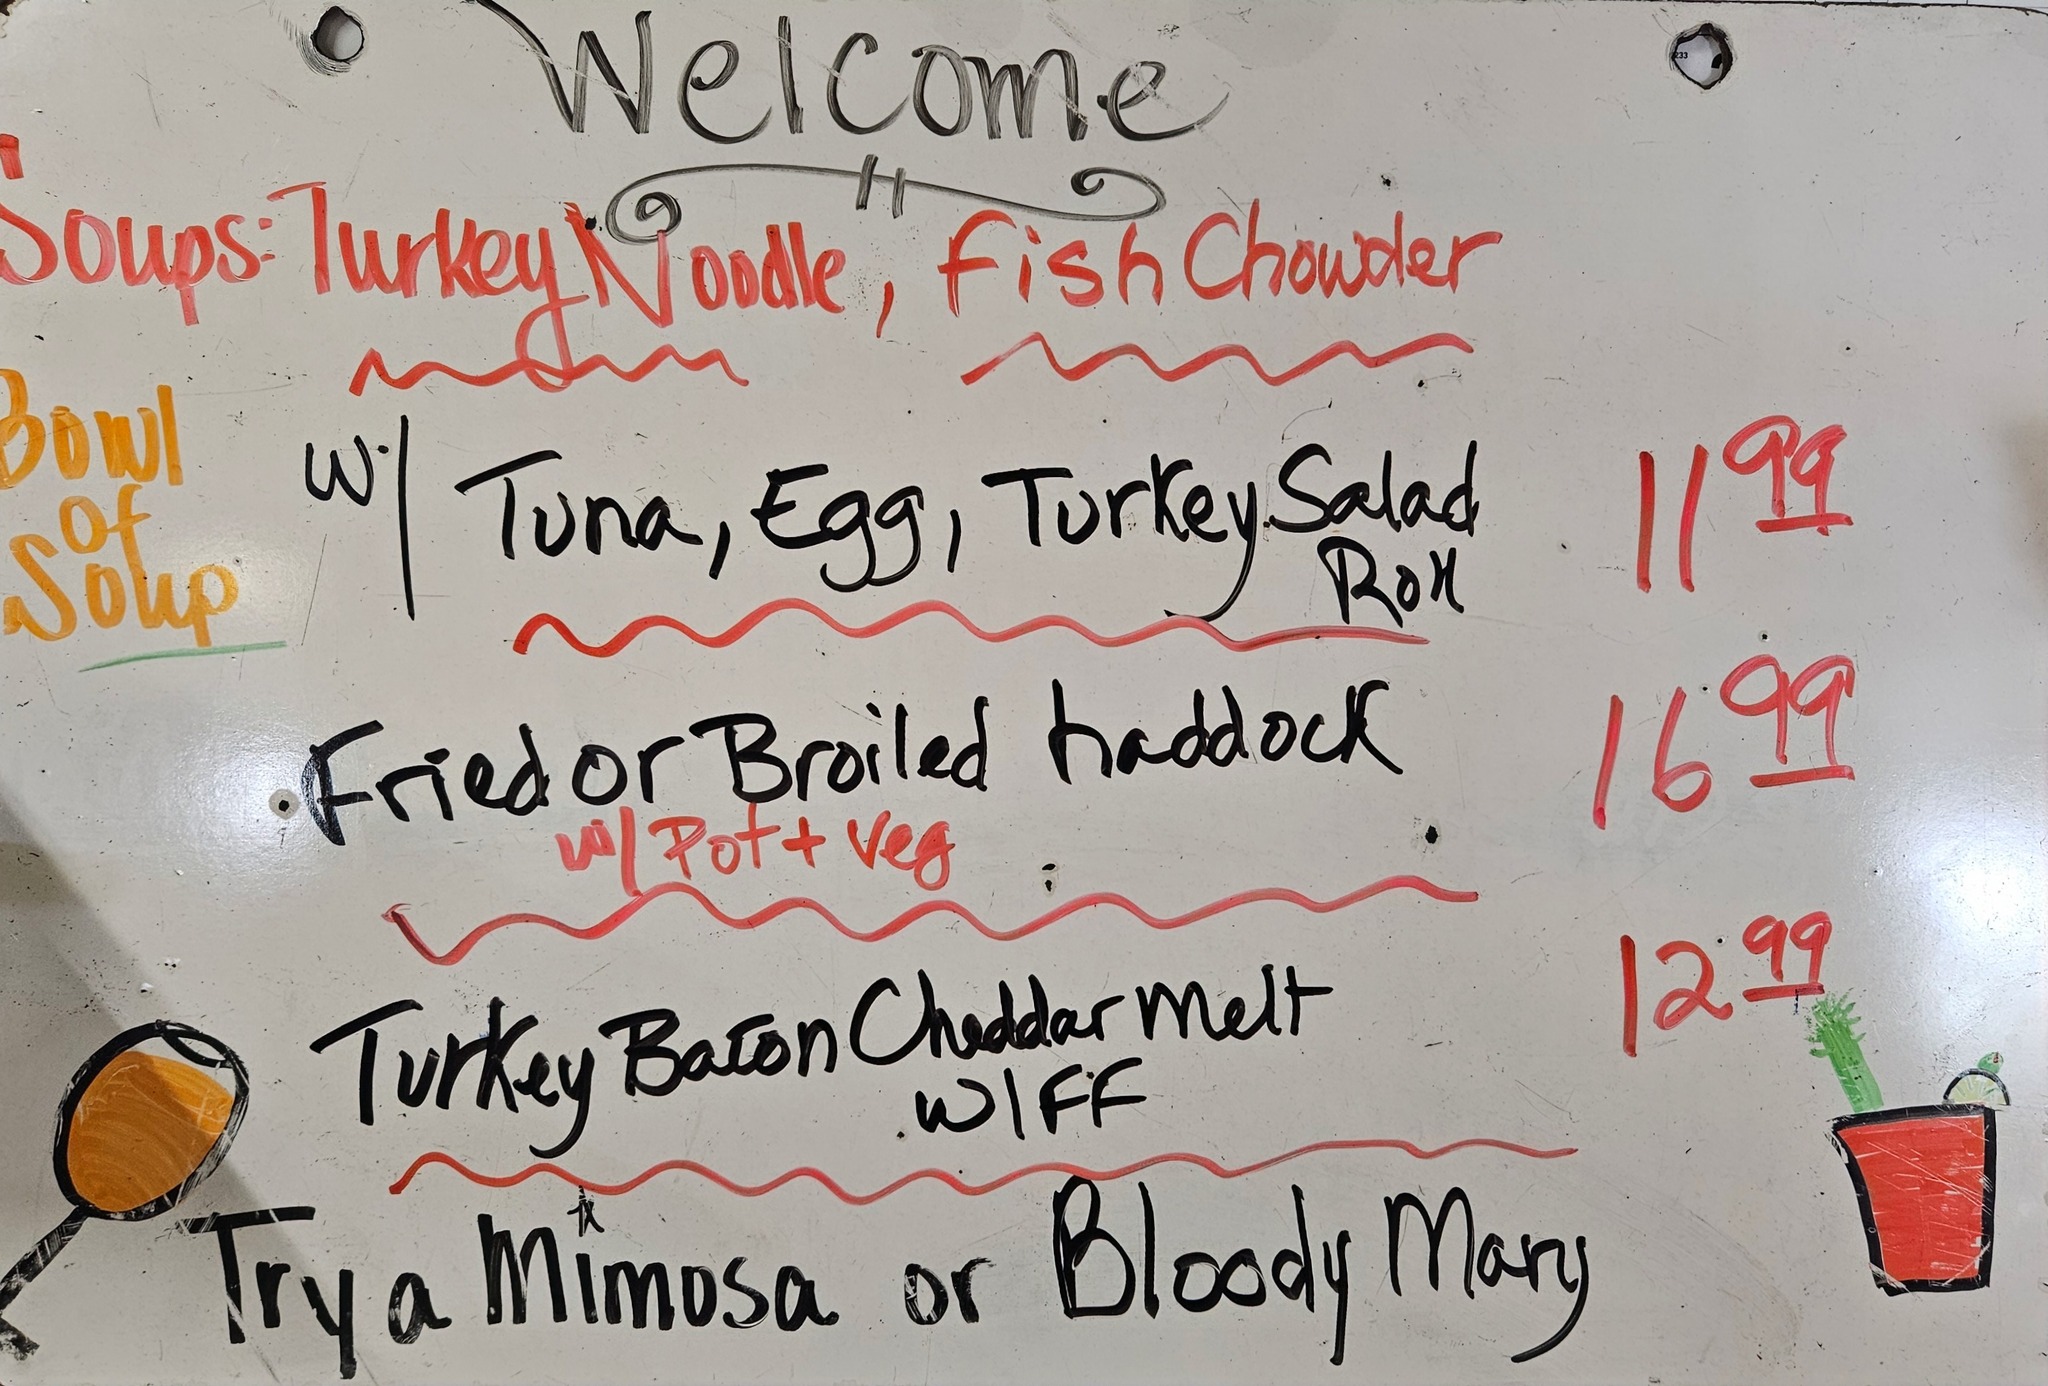 Welcome
Soups: Turkey Noodle, Fish Chowder
Bowl
of
Soup
w/ Tuna, Egg, Turkey Salad 11.99
Roll
Fried or Broiled haddock 16.99
w/ Pot + Veg
Turkey Bacon Cheddar Melt 12.99
W/FF
Try a Mimosa or Bloody Mary